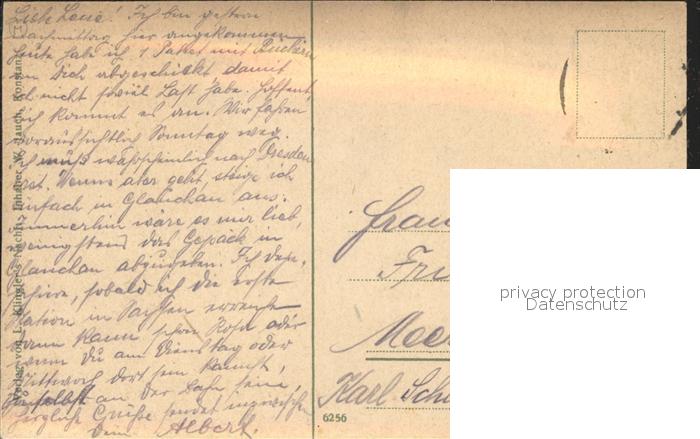 Lieb Louis! Ich bin gestern
nachmittag hier angekommen
Heute habe ich 1 Paket mit Büchern
an Dich abgeschickt, damit
ich nicht soviel Last habe. Hoffent-
lich kommt es an. Wir fahren
voraussichtlich Sonntag weg.
Ich muß wahrscheinlich nach Dresden
erst. Wenns aber geht, steige ich
einfach in Glauchau aus.
Immerhin wäre es mir lieb,
wenigstens das Gepäck in
Glauchau abzugeben. Ich depe-
schiere, sobald ich die erste
Station in Sachsen erreiche
dann kann schon Rosa oder
wenn Du am Dienstag oder
Mittwoch dort sein kannst,
Du selbst an der Bahn sein.
Herzliche Grüsse sendet inzwischen
Dein Albert.
Verlag von J. Klingler's Nachf., Inhaber W. Jauch, Konstanz
Frau
Meer
Karl Sch
6256
privacy protection
Datenschutz